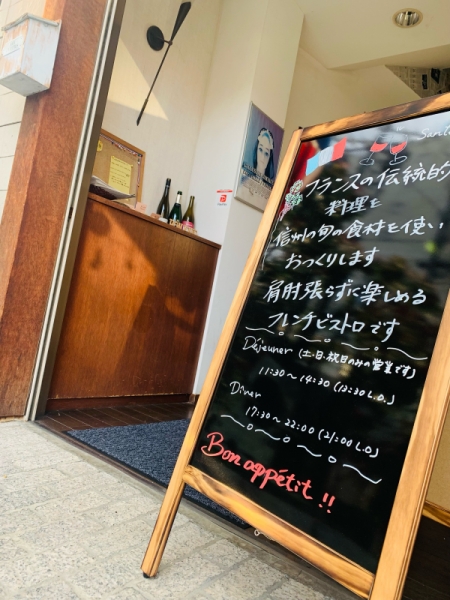 フランスの伝統的
料理を
信州の旬の食材を使い
おつくりします
肩肘張らずに楽しめる
フレンチビストロです
Déjeuner (土・日・祝日のみの営業です)
11:30～14:30 (13:30 L.O.)
Dîner
17:30～22:00 (21:00 L.O.)
Bon appétit!!